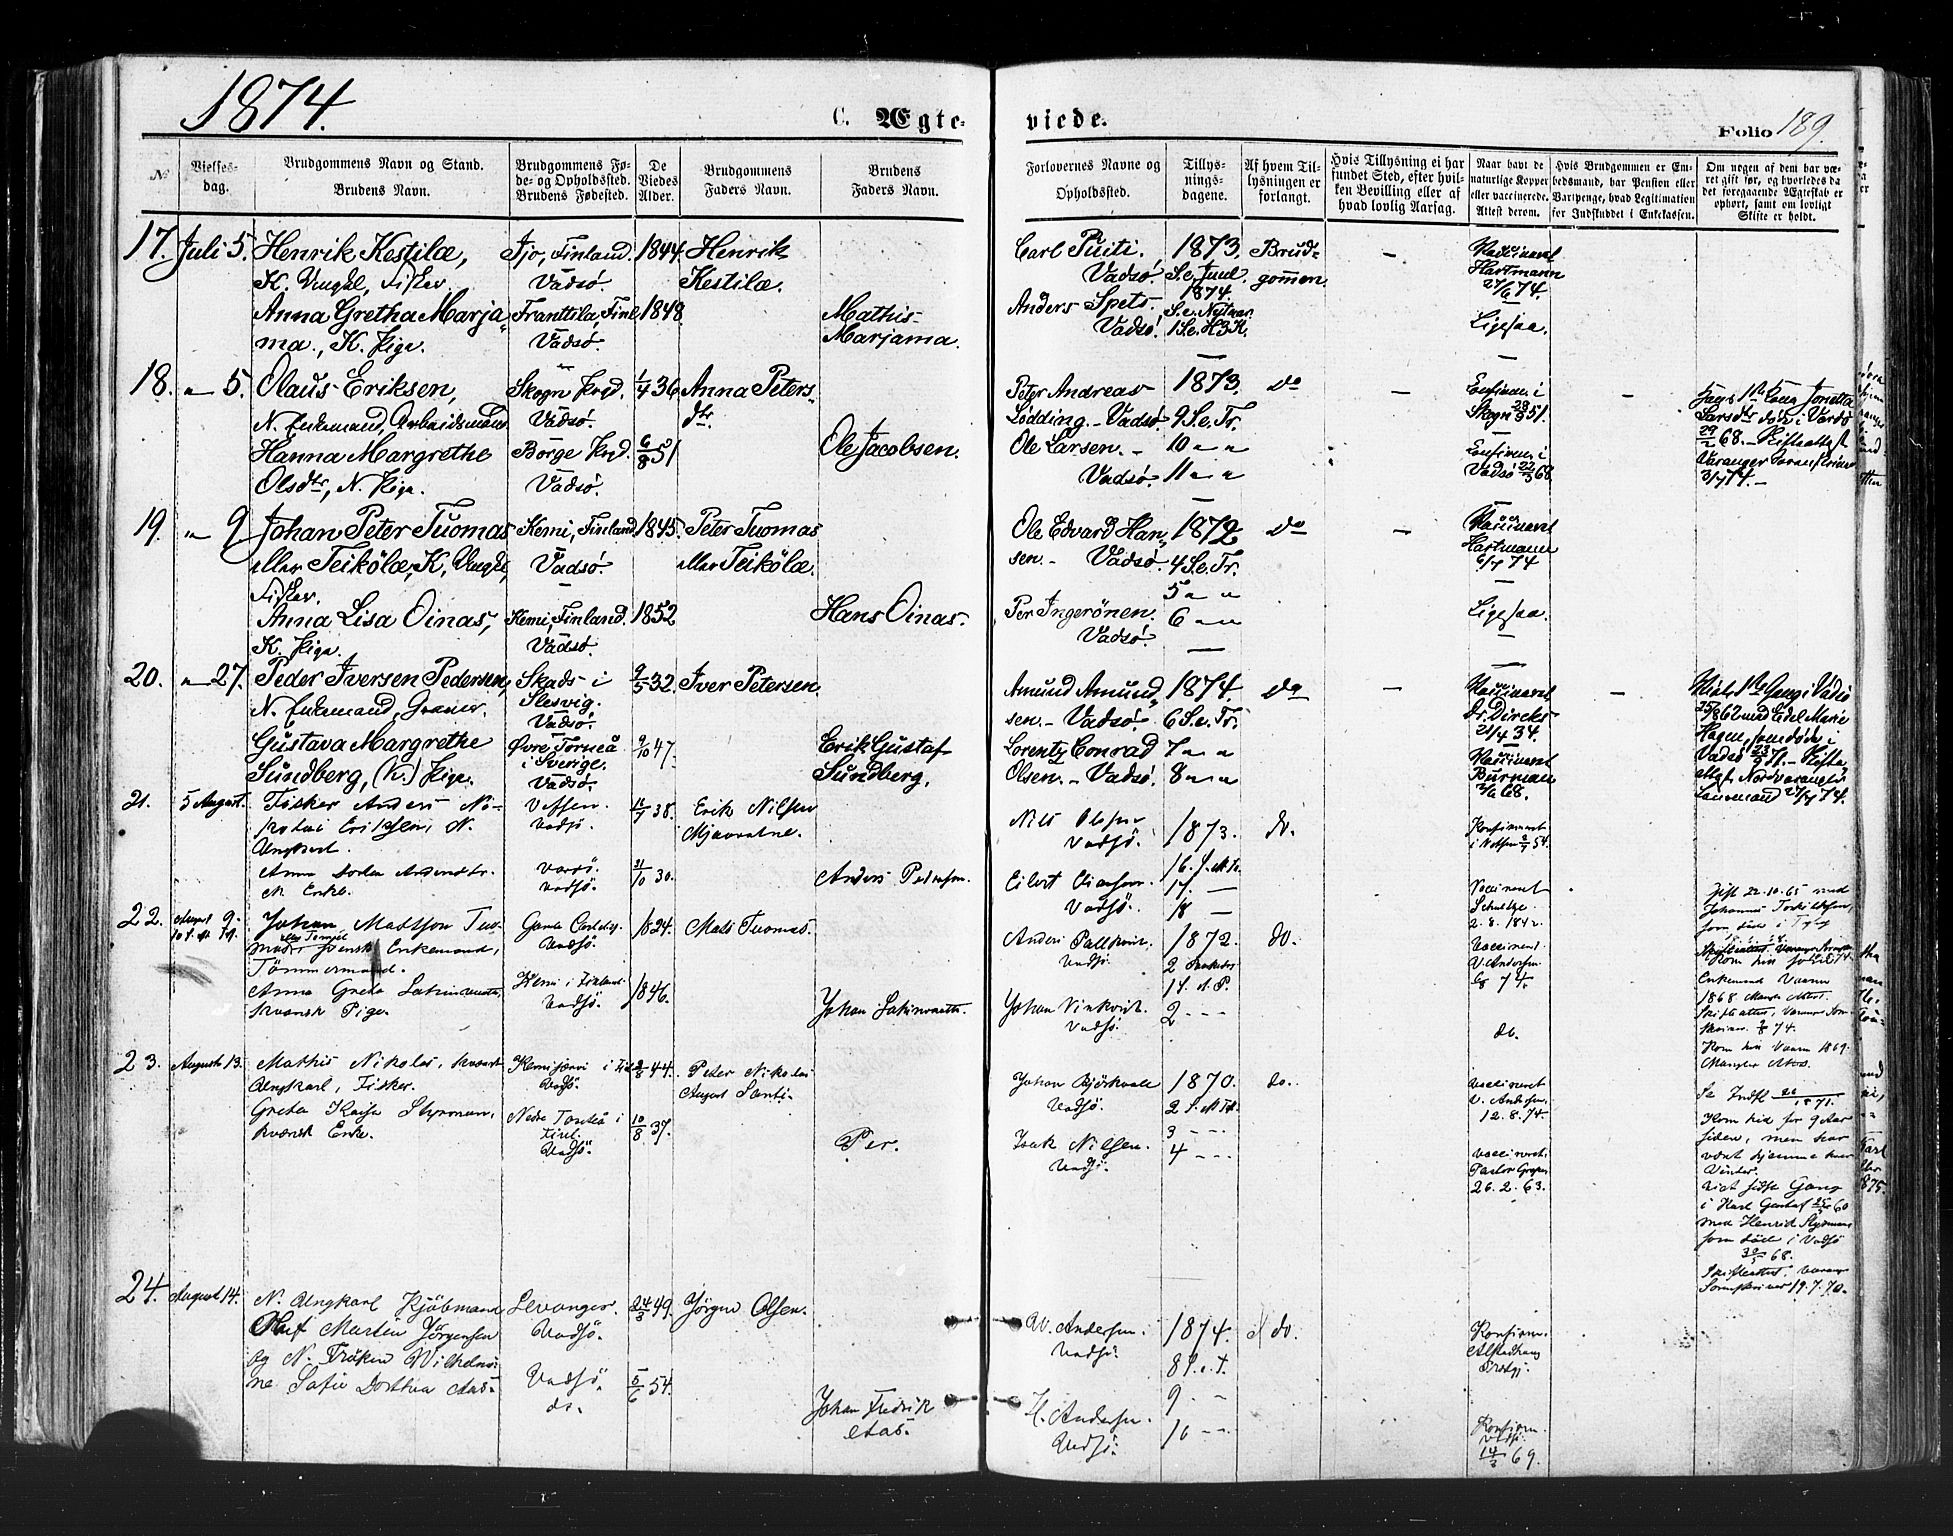 1874.
C. Ægte-
viede.
Folio 189.
№
Vielses-
dag.
Brudgommens Navn og Stand.
Brudens Navn.
Brudgommens Fø-
de- og Opholdssted.
Brudens Fødested.
De
Viedes
Alder.
Brudgommens
Faders Navn.
Brudens
Faders Navn.
Forlovernes Navne og
Opholdssted.
Tillys-
nings-
dagene.
Af hvem Til-
lysningen er
forlangt.
Hvis Tillysning ei har
fundet Sted, efter hvil-
ken Bevilling eller af
hvad lovlig Aarsag.
Naar havt de
naturlige Kopper
eller vaccinerede.
Attest derom.
Hvis Brudgommen er Em-
bedsmand, har Pension eller
Vartpenge, hvad Legitimation
for Indskuddet i Enkekassen.
Om nogen af dem har væ-
ret gift før, og hvorledes da
det foregaaende Ægteskab er
ophørt, samt om lovligt
Skifte er holdt.
17. Juli 5.
Henrik Kestilæ,
K. Ungkl, Fisker
Anna Gretha Marja-
ma., K. Pige.
Ijo, Finland.
Vadsø.
Franttila, Finl.
Vadsø.
1844.
1848.
Henrik
Kestilæ.
Mathis
Marjama.
Carl Puiti.
Vadsø.
Anders Spets.
Vadsø.
1873.
S. e. Juul.
1874.
S. e. Nytaar
1 S. e. H3K.
Brud-
gommen.
Vaccineret
Hartmann
27/6 74.
Ligesaa.
18. " 5.
Olaus Eriksen,
N. Enkemand, Arbeidsmand
Hanna Margrethe
Olsdtr, N. Pige.
Skogn Prgd.
Vadsø.
Borge Prgd.
Vadsø.
1/4 36
6/8 51
Anna Peters-
dtr.
Ole Jacobsen.
Peter Andreas
Lødding. - Vadsø.
Ole Larsen. -
Vadsø.
1873.
9 S. e. Tr.
10 " "
11 " "
do
Confirm. i
Skogn 51.
Confirm. i
Vadsø 68.
Larsdtr død i Vardø
68. - Skifteattest
74. -
19. " 9
Johan Peter Tuomas
eller Teikölæ, K. Ungkl,
Fisker.
Anna Lisa Oinas,
K. Pige.
Kemi, Finland
Vadsø.
Kemi, Finland.
Vadsø.
1845.
1852
Peter Tuomas
eller Teikölæ.
Hans Oinas.
Ole Edvard Han-
sen. - Vadsø.
Per Ingerönen.
Vadsø.
1872
4 S. e. Tr.
5 " "
6 " "
do
Vaccineret
Hartmann
6/7 74
Ligesaa.
20. " 27.
Peder Iversen Pedersen,
N. Enkemand, Graver.
Gustava Margrethe
Sundberg, (K.) Pige.
Skads i
Slesvig.
Vadsø.
Øvre Torneå
i Sverige.
Vadsø.
9/5 32.
9/10 47.
Iver Petersen.
Erik Gustaf
Sundberg.
Amund Amund-
sen. - Vadsø.
Lorentz Conrad
Olsen. - Vadsø.
1874.
6 S. e. Tr.
7 " "
8 " "
do
Vaccineret
Dr. Dircks
21/4 34.
Vaccineret
68.
Viet 1ste Gang i Vadsø
25/8 62 med Edel Marie
Hagen, som døde i
Vadsø 71. - Skifte-
attest Nordvaranger
Lensmand 74.
21. 5 August.
Fisker Anders Ni-
kolai Eriksen, N.
Ungkarl.
N. Enke.
Vefsen.
Vadsø.
Vardö.
Vadsö.
38.
31/10 30.
Erik Nilsen
Anders Pedersen.
Nils Olsen
Vadsö.
Eilert
Vadsö.
1873.
17. —
18 —
do.
Konfirmeret
54.
Vaccineret
Schultze
2. 8. 1842.
Gift 22.10.65 med
Johannes
som døde i
22. August 9.
Johan Mattson Tuo-
Enkemand,
Tömmermand.
Anna Greta
kvænsk Pige.
Vadsö.
Kemi i Finland
Vadsö.
1824.
1846.
Mats Tuomas.
Johan
Anders Pallkvist
Vadsö.
Johan Vinkvist.
Vadsö.
1872.
2
2 - - -
do.
Vaccineret
V. Andersen
74.
do.
Enkemand Vaaren
1868
74.
Kom hid Vaaren 1869.
Mangler Attest.
23. August 13.
Mathis Nikolas, kvænsk
Ungkarl, Fisker.
Greta Kaisa Styrman,
kvænsk Enke.
Kemijærvi i Finl.
Vadsö.
Nedre Torneå i
Finl.
Vadsö.
44.
10/8 37.
Peter Nikolas
August Santi.
Per.
Johan Björkvall
Vadsö.
Isak Nilsen.
Vadsö.
1870.
3 - - -
4 - - -
do.
Vaccineret
V. Andersen.
12.8.74.
Vaccineret
Pastor
26.2.63.
Kom hid for 9 Aar
siden, men har
været hjemme hver
Vinter.
Viet første Gang
i Karl Gustaf 60
med Henrik Styrman
som døde i Vadsö
68.
Skifteattest.
Sorenskriver 19.7.70.
24. August 14.
N. Ungkarl Kjøbmand
Olaf Martin Jörgensen
og N. Fröken Wilhelmi-
ne Sofie Dorthea Aas.
Levanger.
Vadsö.
Vadsö
do.
24/3 49.
5/6 54.
Jörgen Olsen.
Johan Fredrik
Aas.
W. Andersen.
Vadsö.
H. Andersen.
Vadsö.
1874.
8 S. e. T.
9 - -
10 - -
do.
Konfirm.
Konfirm.
Vadsö
69.